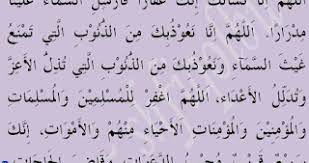 اللهم إنا نسألك إنك غفارا فأرسل السماء علينا
مِدْرَارًا. اَللَّهُمَّ إِنَّا نَعُوْذُبِكَ مِنَ الذُّنُوْبِ الَّتِي تَمْنَعُ
غَيْثَ السَّمَآءِ وَنَعُوْذُبِكَ مِنَ الذُّنُوْبِ الَّتِي تُذِلُّ الأَعِزَّ
وَتُدَلِّلُ الأَعْدَاءَ، اَللَّهُمَّ اغْفِرْ لِلْمُسْلِمِيْنَ وَالْمُسْلِمَاتِ
وَالْمُؤْمِنِيْنَ وَالْمُؤْمِنَاتِ الأَحْيَاءِ مِنْهُمْ وَالأَمْوَاتِ، إِنَّكَ